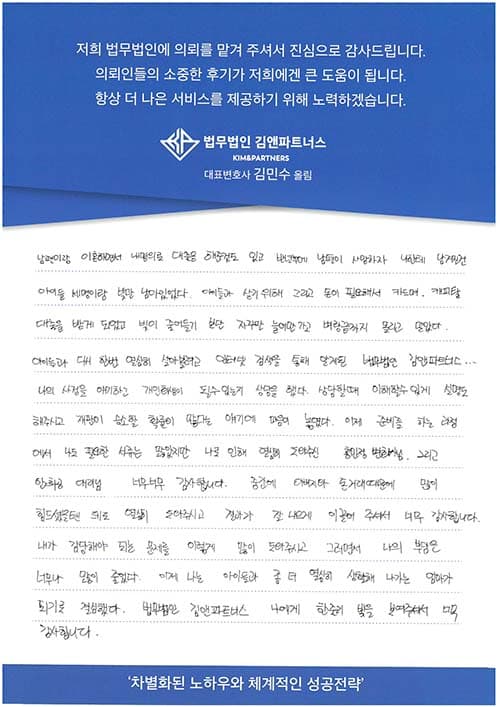 저희 법무법인에 의뢰를 맡겨 주셔서 진심으로 감사드립니다.
의뢰인들의 소중한 후기가 저희에겐 큰 도움이 됩니다.
항상 더 나은 서비스를 제공하기 위해 노력하겠습니다.
법무법인 김앤파트너스
KIM&PARTNERS
대표변호사 김민수 올림
남편이랑 이혼하면서 내명의로 대출은 해준것도 있고
아이들 세명이랑 빚만 남아있었다. 아이들과 살기 위해 그리고 돈이 필요해서 카드며, 캐피탈
대출을 받게 되었고 빚이 줄어들기 보단 자꾸만 늘어만 가고 벼랑끝까지 몰리고 말았다.
아이들과 다시 한번 열심히 살아볼려고 인터넷 검색을 통해 알게된 법무법인 김앤파트너스...
나의 사정을 얘기하고 개인회생이 될수 있는지 상담을 했다. 상담할때 이해할수 있게 설명도
해주시고 재판이 승소할 확률이 많다는 얘기에 마음이 놓였다. 이제 준비를 하는 과정
에서 나도 필요한 서류는 많았지만 나로 인해 열심히 도와주신 변호사님, 그리고
대리님 너무너무 감사합니다. 중간에 많이
힘드셨을텐데 열심히 도와주시고 결과가 잘 나오게 이끌어 주셔서 너무 감사합니다.
내가 감당해야 되는 문제를 이렇게 많이 도와주시고 그러면서 나의 부담은
너무나 많이 줄었다. 이제 나는 아이들과 좀 더 열심히 생활해 나가는 엄마가
되기로 결심했다. 법무법인 김앤파트너스 나에게 한줄기 빛을 보여주셔서 너무
감사합니다.
'차별화된 노하우와 체계적인 성공전략'